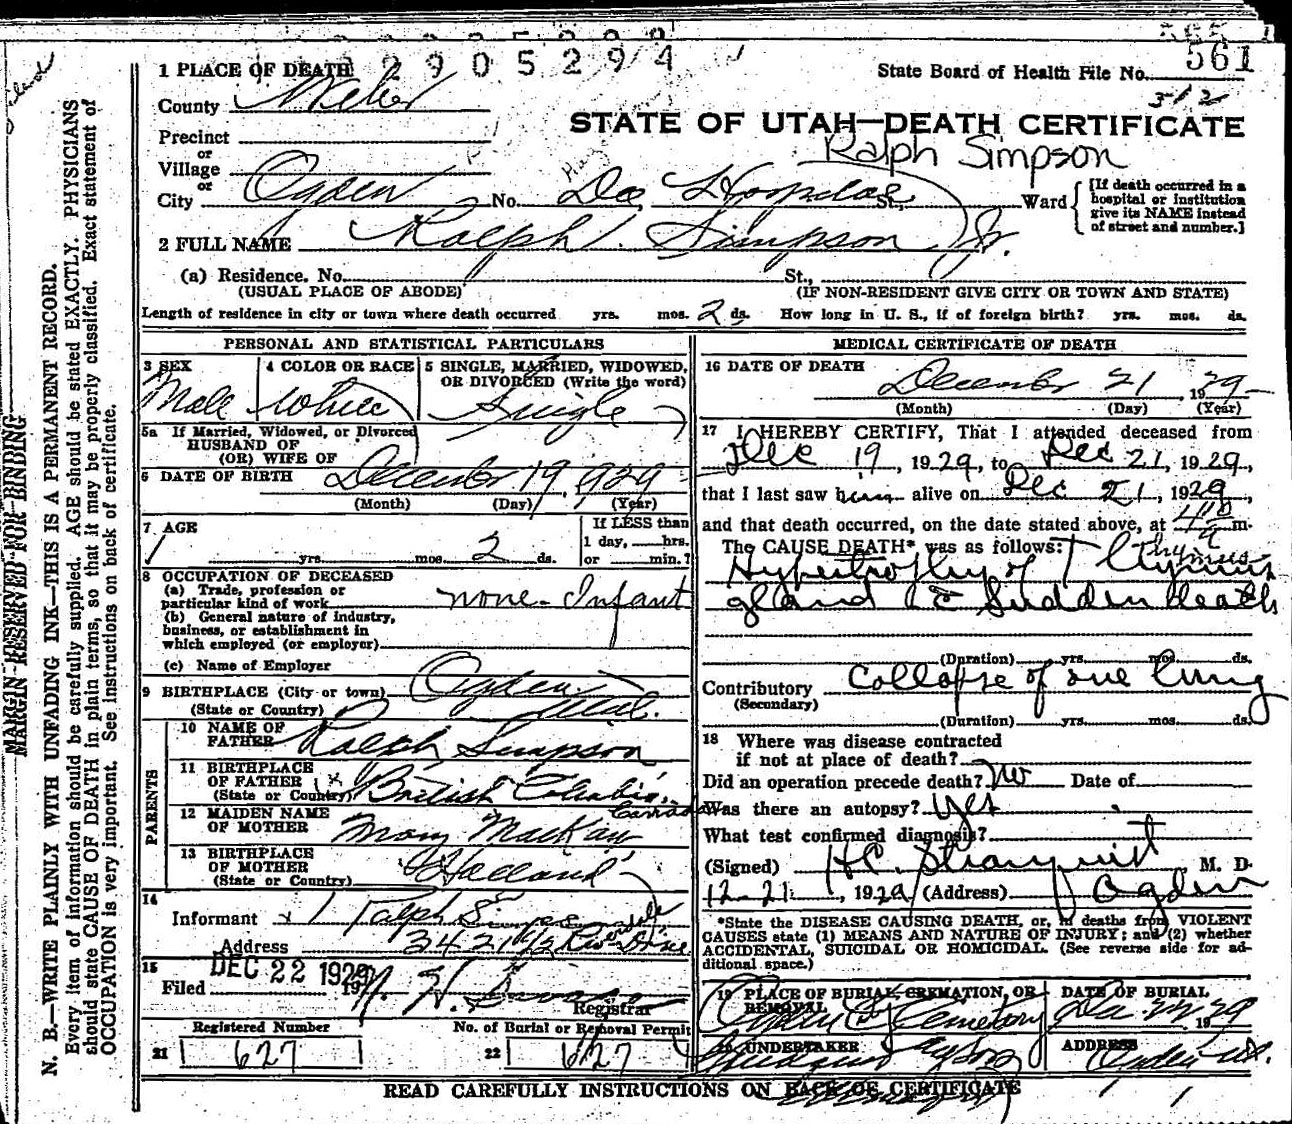 2905294
561
1 PLACE OF DEATH
State Board of Health File No.
312
County Weber
STATE OF UTAH—DEATH CERTIFICATE
Precinct
Ralph Simpson
or
Village
or
City Ogden No. Dee Hospital St., Ward
[If death occurred in a
hospital or institution
give its NAME instead
of street and number.]
2 FULL NAME Ralph Simpson Jr.
(a) Residence. No. St.,
(USUAL PLACE OF ABODE) (IF NON-RESIDENT GIVE CITY OR TOWN AND STATE)
Length of residence in city or town where death occurred yrs. mos. 2 ds. How long in U. S., if of foreign birth? yrs. mos. ds.
PERSONAL AND STATISTICAL PARTICULARS
3 SEX
Male
4 COLOR OR RACE
White
5 SINGLE, MARRIED, WIDOWED,
OR DIVORCED (Write the word)
Single
5a If Married, Widowed, or Divorced
HUSBAND OF
(OR) WIFE OF
6 DATE OF BIRTH December 19, 1929
(Month) (Day) (Year)
7 AGE
yrs. mos. 2 ds.
If LESS than
1 day, hrs.
or min.?
8 OCCUPATION OF DECEASED
(a) Trade, profession or
particular kind of work none - Infant
(b) General nature of industry,
business, or establishment in
which employed (or employer)
(c) Name of Employer
9 BIRTHPLACE (City or town) Ogden
(State or Country) Utah.
PARENTS
10 NAME OF
FATHER Ralph Simpson
11 BIRTHPLACE
OF FATHER
(State or Country) British Columbia,
Canada
12 MAIDEN NAME
OF MOTHER Mary MacKay
13 BIRTHPLACE
OF MOTHER
(State or Country) Holland
14
Informant Ralph Simpson
Address 3421 1/2 Riverdale Drive
15
Filed DEC 22 1929 19
Registrar
Registered Number
21 627
No. of Burial or Removal Permit
22 627
MEDICAL CERTIFICATE OF DEATH
16 DATE OF DEATH
December 21 1929
(Month) (Day) (Year)
17 I HEREBY CERTIFY, That I attended deceased from
Dec 19, 1929, to Dec 21, 1929,
that I last saw him alive on Dec 21, 1929,
and that death occurred, on the date stated above, at m.
The CAUSE DEATH* was as follows:
thymus
Hypertrophy of Thymus
gland c̄ Sudden death
(Duration) yrs. mos. ds.
Contributory Collapse of one lung
(Secondary)
(Duration) yrs. mos. ds.
18 Where was disease contracted
if not at place of death?
Did an operation precede death? No Date of
Was there an autopsy? yes
What test confirmed diagnosis?
(Signed) H.C. Stranquist M. D.
12-21-, 1929 (Address) Ogden
*State the DISEASE CAUSING DEATH, or, in deaths from VIOLENT
CAUSES state (1) MEANS AND NATURE OF INJURY; and (2) whether
ACCIDENTAL, SUICIDAL OR HOMICIDAL. (See reverse side for ad-
ditional space.)
19 PLACE OF BURIAL, CREMATION, OR
REMOVAL
Ogden City Cemetery
DATE OF BURIAL
Dec 22 1929
20 UNDERTAKER
ADDRESS
Ogden Ut.
READ CAREFULLY INSTRUCTIONS ON BACK OF CERTIFICATE
MARGIN RESERVED FOR BINDING
N. B.—WRITE PLAINLY WITH UNFADING INK—THIS IS A PERMANENT RECORD.
Every item of information should be carefully supplied. AGE should be stated EXACTLY. PHYSICIANS
should state CAUSE OF DEATH in plain terms, so that it may be properly classified. Exact statement of
OCCUPATION is very important. See instructions on back of certificate.